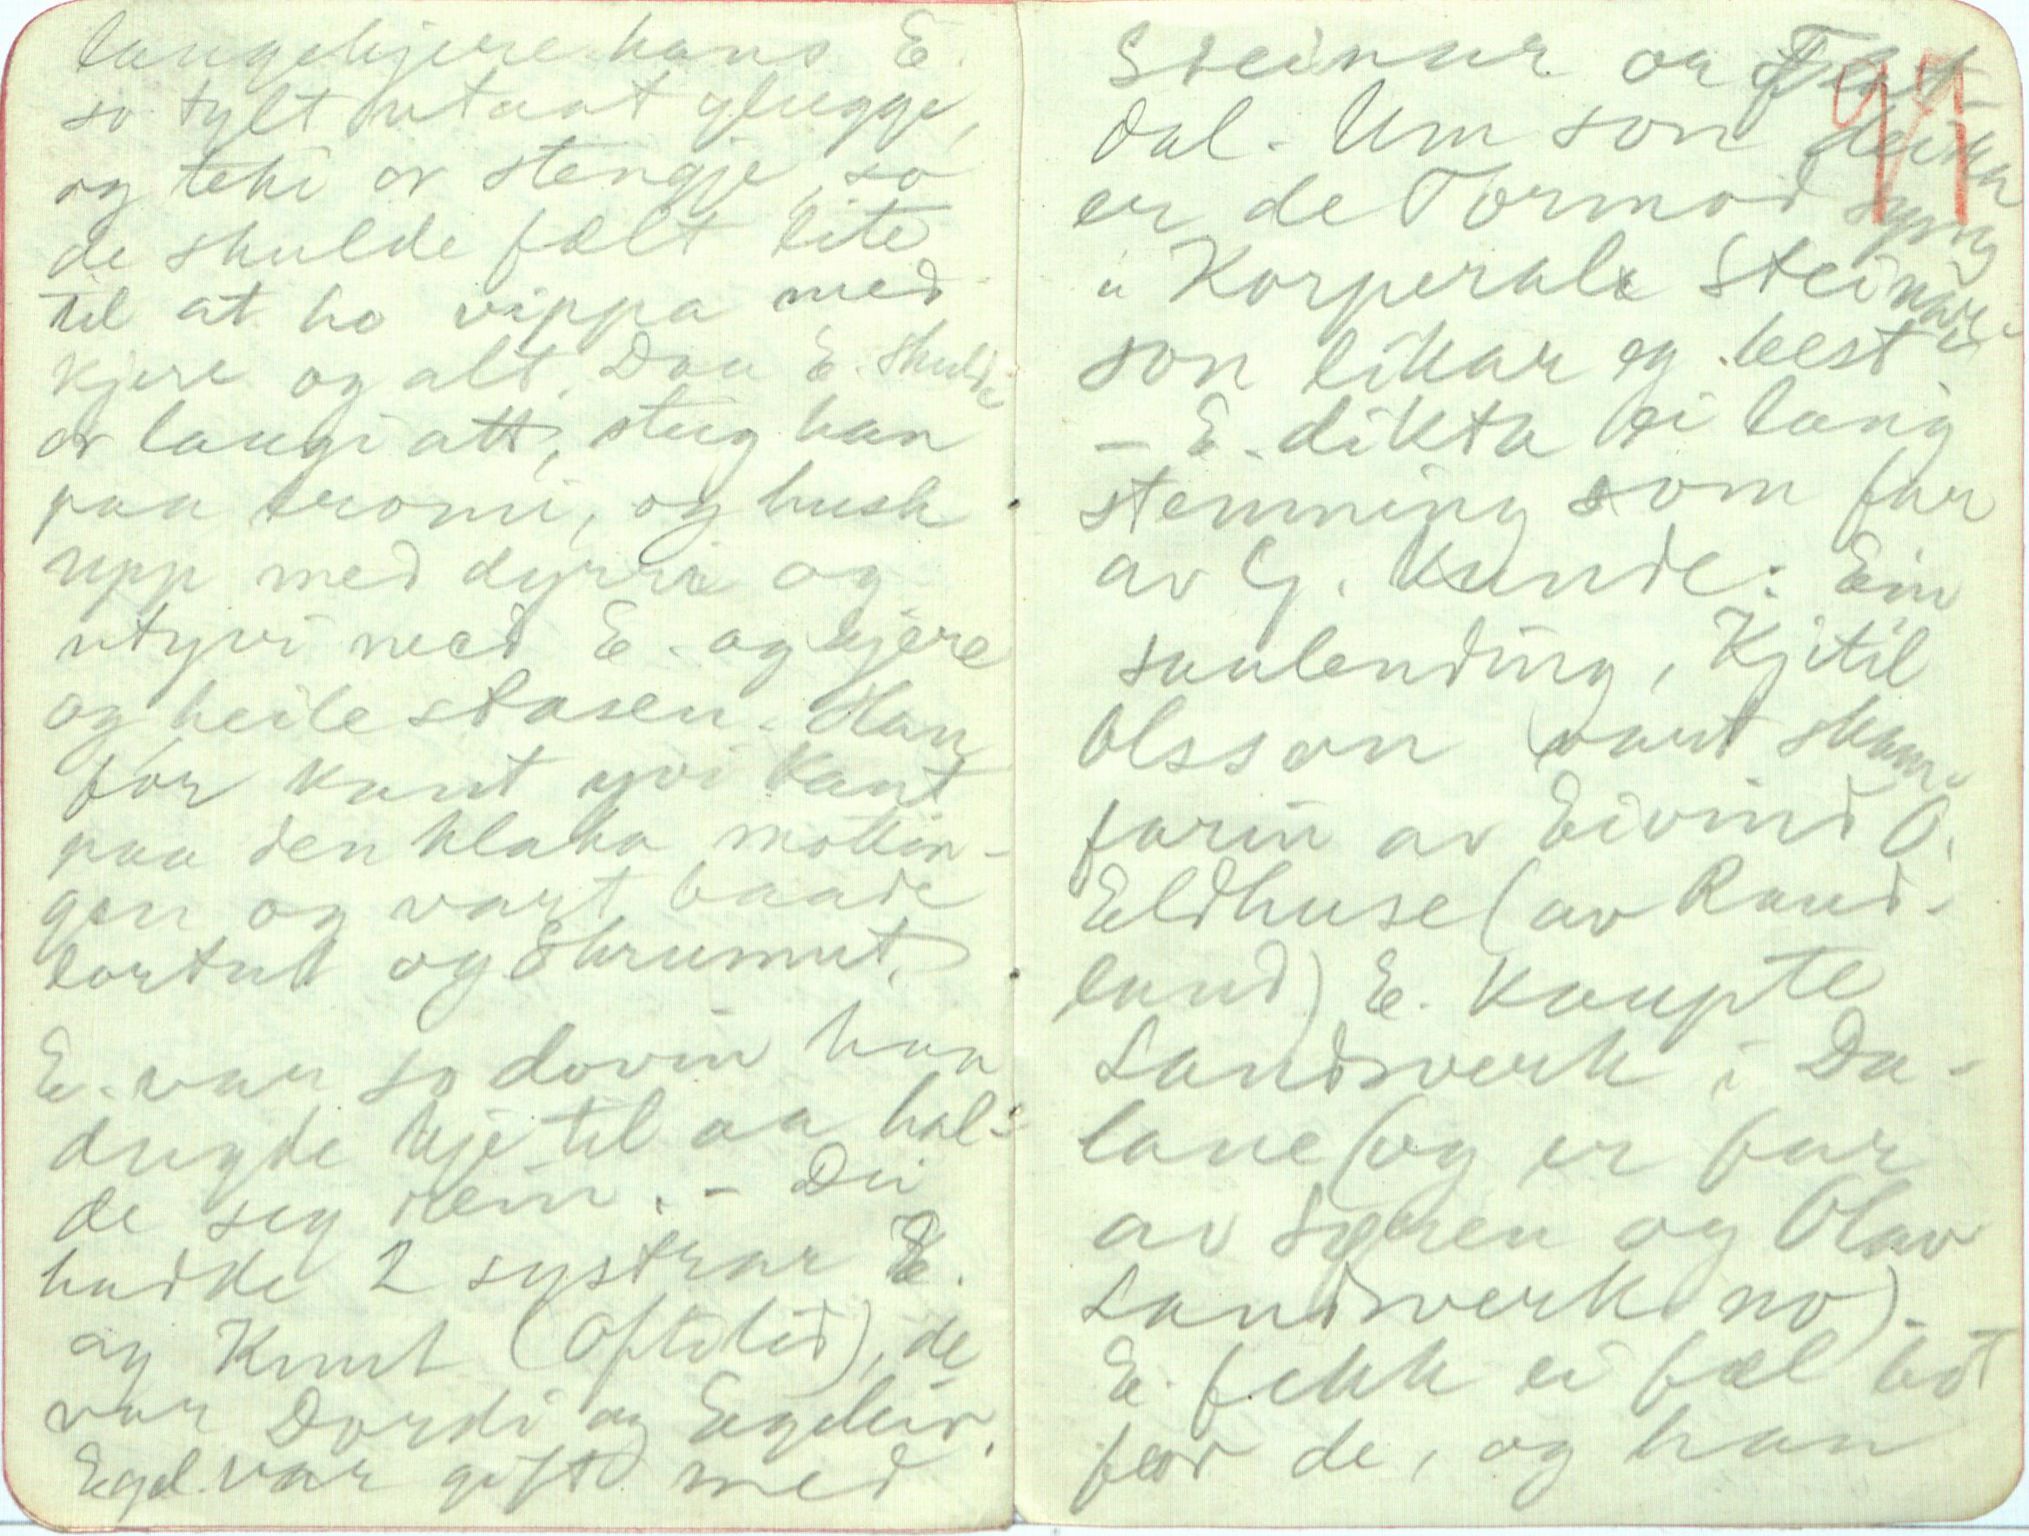 laugekjere hans E.
so tylt utaat glugge,
og teki or stengje, so
de skulde fælt lite
til at ho vippa med
kjere og alt. Daa E. skulde
or laugi att, steig han
paa tromi, og husk
upp med dyrri og
utyvi med E. og kjere
og heile stasen. Han
for kant yvi kant
paa den klaka mottin-
gen og vart baade
lortut og skrumut.
E. var so dovin han
dugde kje til aa hal-
de seg rein. - Dei
hadde 2 systrar E.
og Knut (Oftelid), de
var Dordi og Egeleiv.
Egel. var gift med
Steinar on Flat-
dal. Um son deira
er de Tormod syng
"Korperale Steinars-
son likar eg best"
- E. dikta ei lang
stemning som far
av G. Kunde: Ein
saulending, Kjitil
Olsson vart skam-
farin av Eivind O.
Eldhuse (av Raud-
land) E. kaupte
Landsverk i Da-
lane (og er far
av Søren og Olav
Landsverk no).
E. fekk ei fæl bot
for de, og han
97